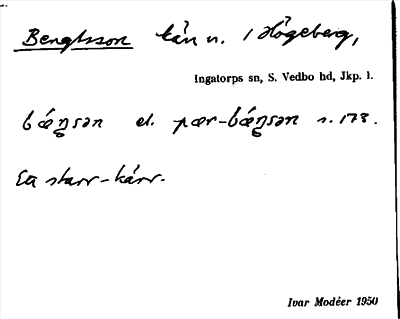 Bengtsson kärr n. / Högeberg,
Ingatorps sn, S. Vedbo hd, Jkp. l.
bæŋsən el. pær-bæŋsən s. 173.
Ett starr-kärr.
Ivar Modéer 1950